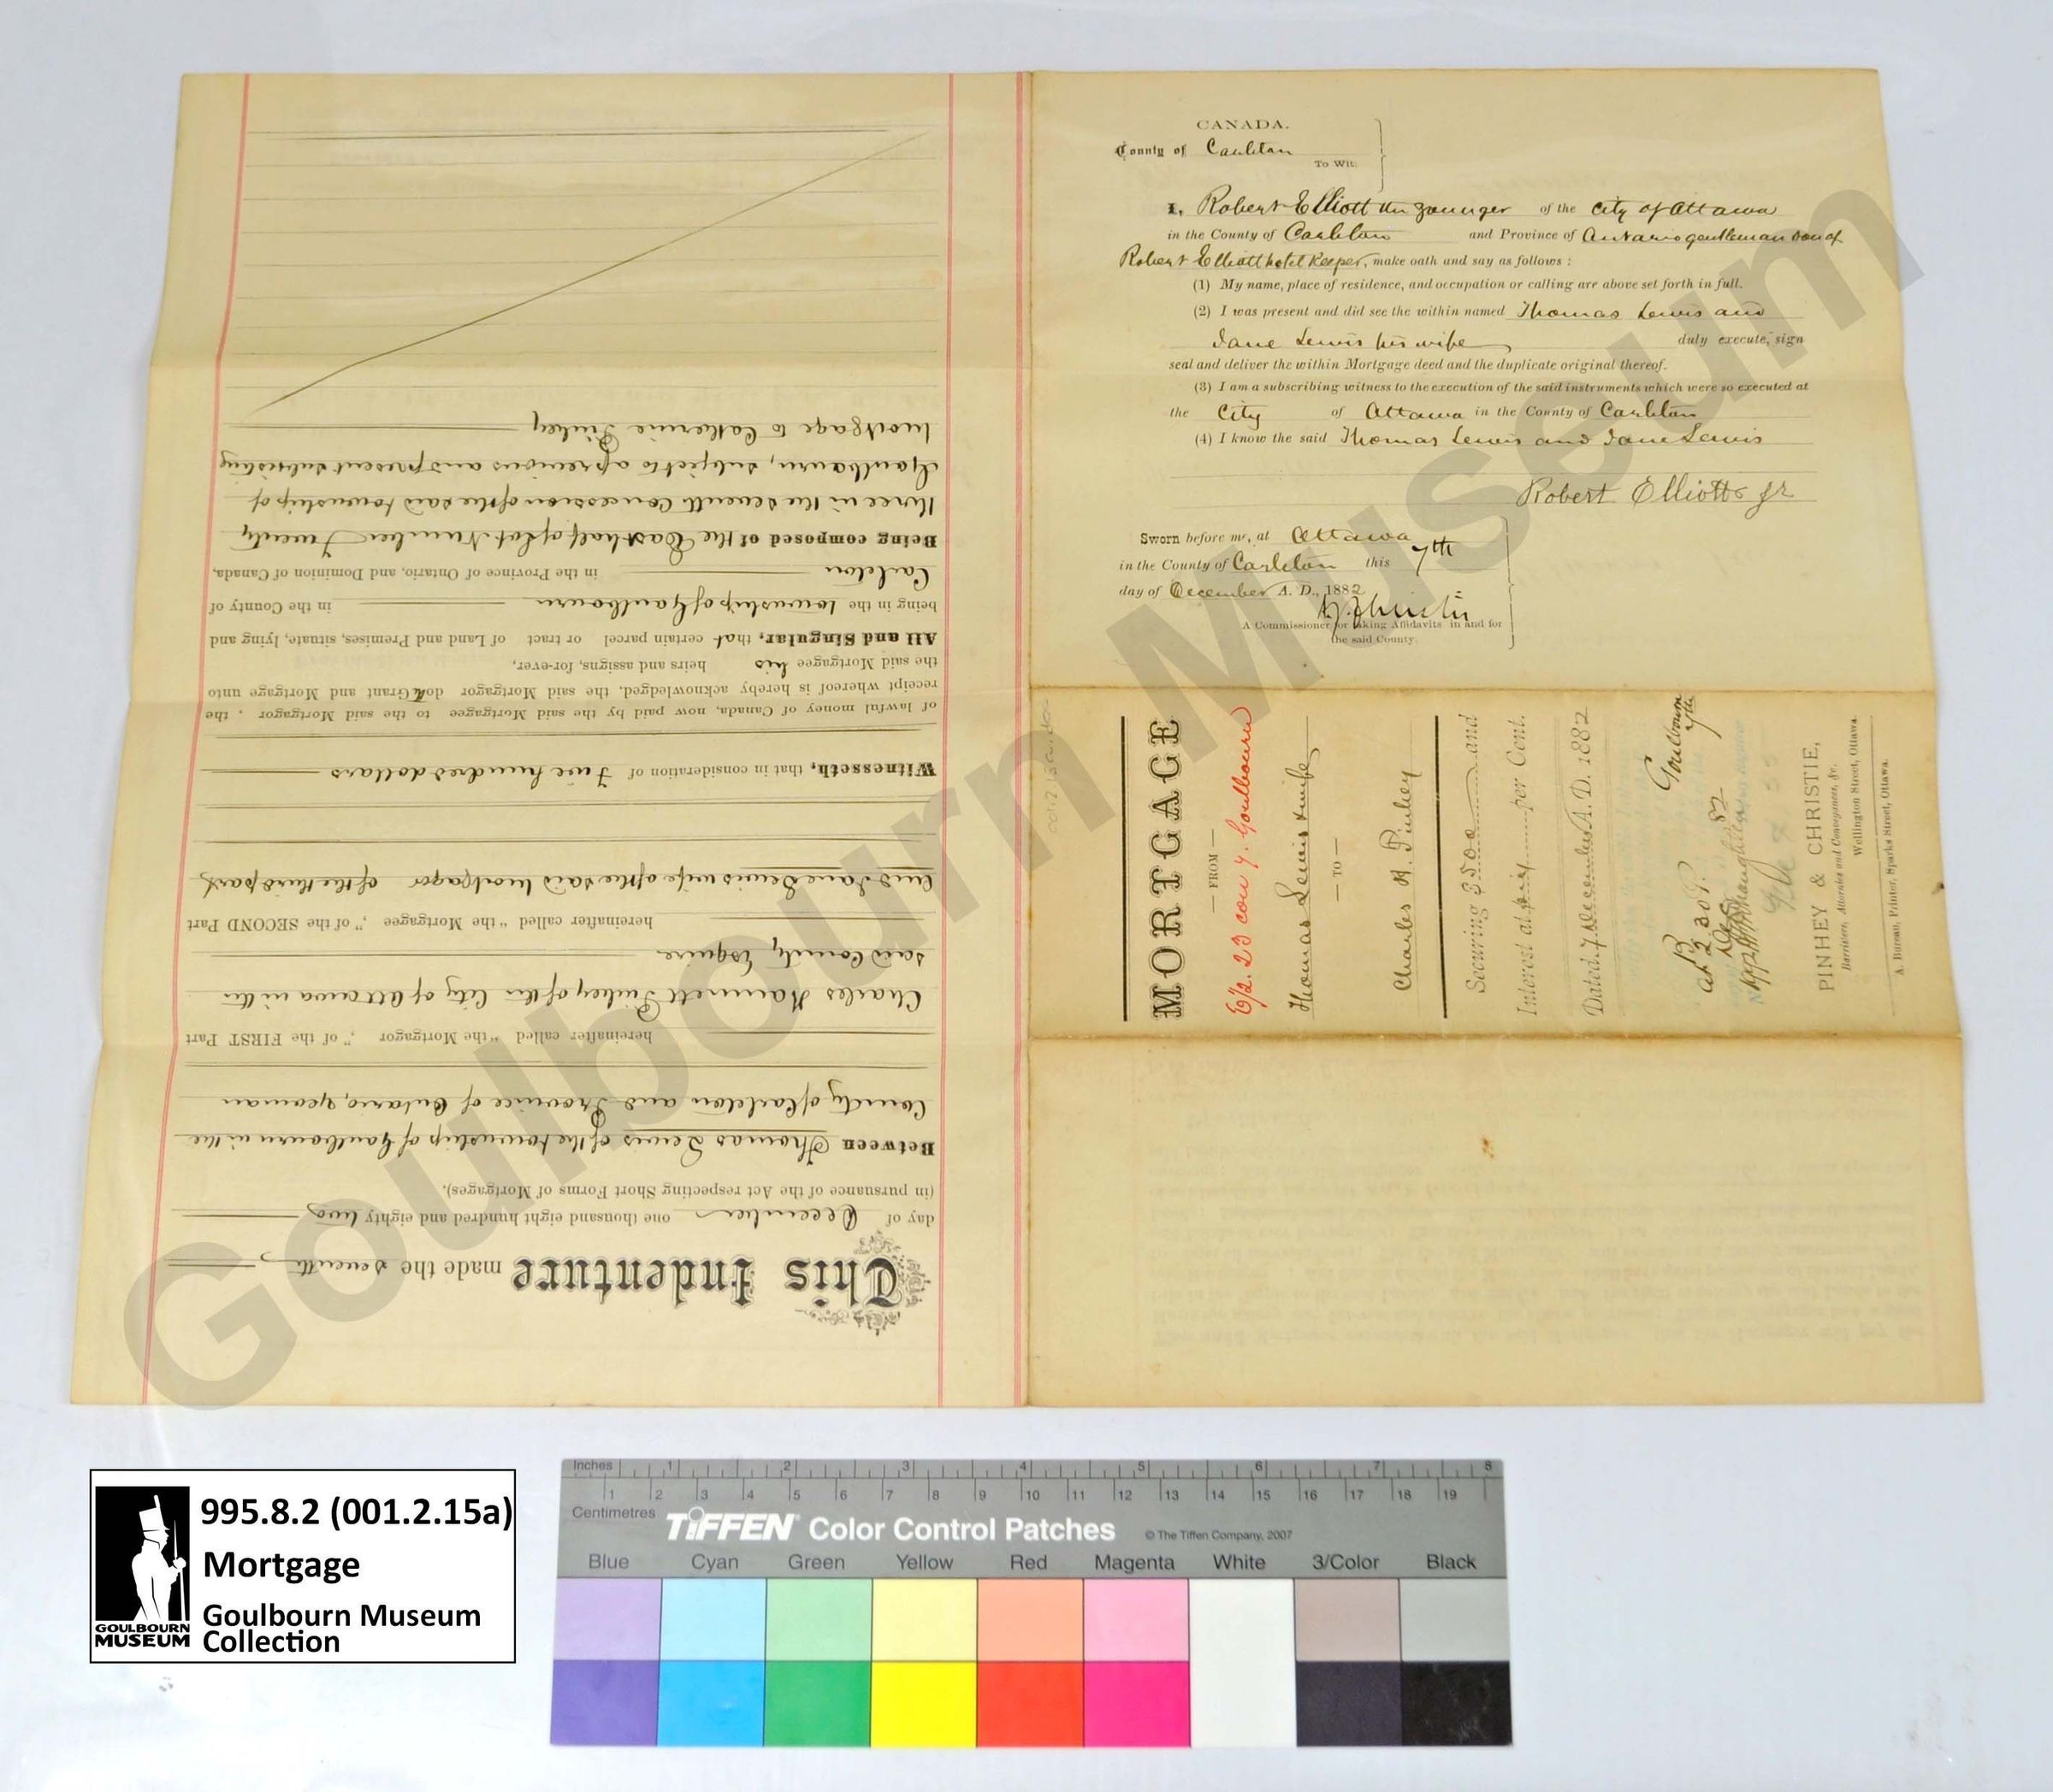 This Indenture made the seventh
day of December one thousand eight hundred and eighty two
(in pursuance of the Act respecting Short Forms of Mortgages).
Between Thomas Lewis of the township of Goulbourn in the
County of Carleton and Province of Ontario, yeoman
hereinafter called "the Mortgagor ," of the FIRST Part
Charles Hamnett Pinhey of the City of Ottawa in the
said County Esquire
hereinafter called "the Mortgagee ," of the SECOND Part
And Jane Lewis wife of the said Mortgagor of the third part
Witnesseth, that in consideration of Five hundred dollars
of lawful money of Canada, now paid by the said Mortgagee to the said Mortgagor , the
receipt whereof is hereby acknowledged, the said Mortgagor doth Grant and Mortgage unto
the said Mortgagee his heirs and assigns, for-ever,
All and Singular, that certain parcel or tract of Land and Premises, situate, lying and
being in the township of Goulbourn in the County of
Carleton in the Province of Ontario, and Dominion of Canada,
Being composed of the East half of Lot Number Twenty
three in the seventh Concession of the said township of
Goulbourn, subject to a previous and present subsisting
Mortgage to Catherine Pinhey
CANADA.
County of Carleton
To Wit:
I, Robert Elliott the younger of the City of Ottawa
in the County of Carleton and Province of Ontario gentleman son of
Robert Elliott hotel keeper, make oath and say as follows :
(1) My name, place of residence, and occupation or calling are above set forth in full.
(2) I was present and did see the within named Thomas Lewis and
Jane Lewis his wife duly execute, sign
seal and deliver the within Mortgage deed and the duplicate original thereof.
(3) I am a subscribing witness to the execution of the said instruments which were so executed at
the City of Ottawa in the County of Carleton
(4) I know the said Thomas Lewis and Jane Lewis
Robert Elliott Jr
Sworn before me, at Ottawa
in the County of Carleton this 7th
day of December A. D., 1882
A Commissioner for taking Affidavits in and for
the said County.
MORTGAGE
— FROM —
E½ 23 con 7. Goulbourn
Thomas Lewis & wife
— TO —
Charles H. Pinhey
Securing $500 and
Interest at per Cent.
Dated 7 December A. D. 1882
Goulbourn
7th
82
PINHEY & CHRISTIE,
Barristers, Attornies and Conveyancers, &c.
Wellington Street, Ottawa.
A. Bureau, Printer, Sparks Street, Ottawa.
Goulbourn Museum
995.8.2 (001.2.15a)
Mortgage
Goulbourn Museum
Collection
GOULBOURN
MUSEUM
Inches 1 2 3 4 5 6 7 8
1 2 3 4 5 6 7 8 9 10 11 12 13 14 15 16 17 18 19
Centimetres
TIFFEN Color Control Patches © The Tiffen Company, 2007
Blue Cyan Green Yellow Red Magenta White 3/Color Black